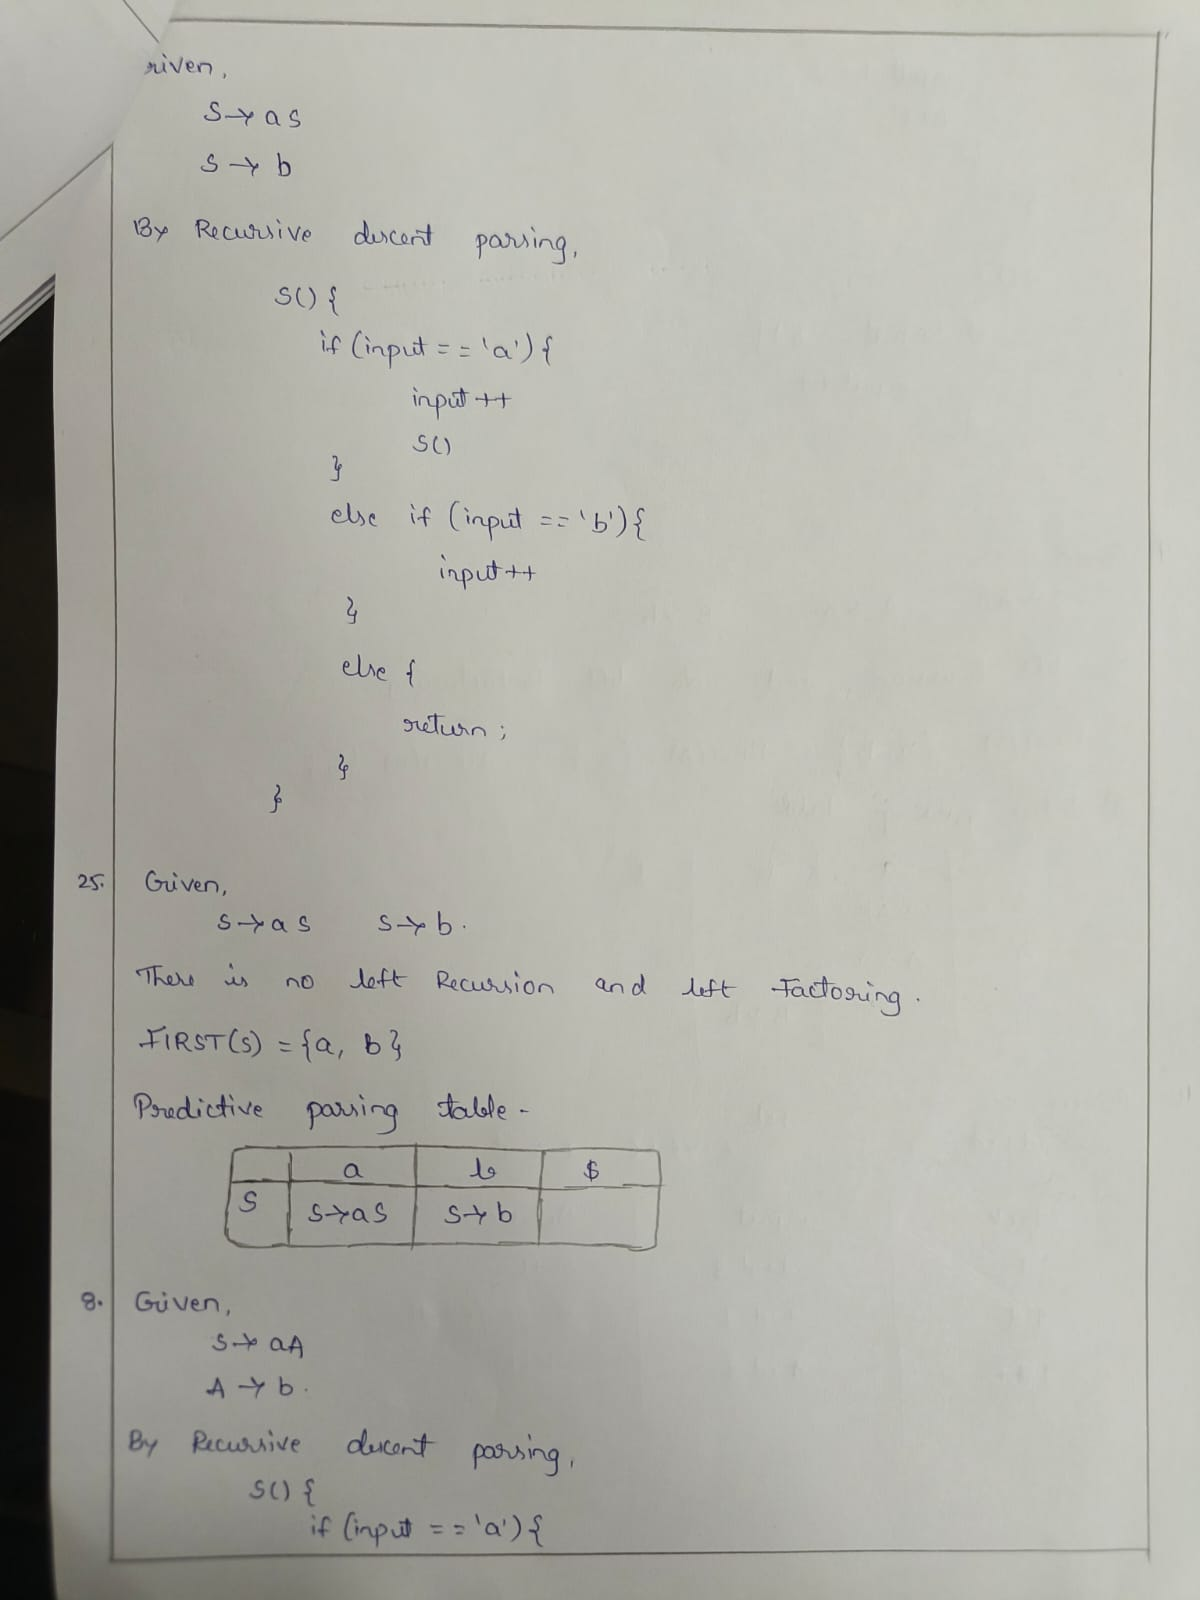 riven,
S → aS
S → b
By Recursive descent parsing,
S() {
if (input == 'a') {
input ++
S()
}
else if (input == 'b') {
input ++
}
else {
return ;
}
}
25. Given,
S → aS S → b.
There is no left Recursion and left Factoring.
FIRST(S) = {a, b}
Predictive parsing table -
a b $
S S → aS S → b
8. Given,
S → aA
A → b.
By Recursive descent parsing,
S() {
if (input == 'a') {